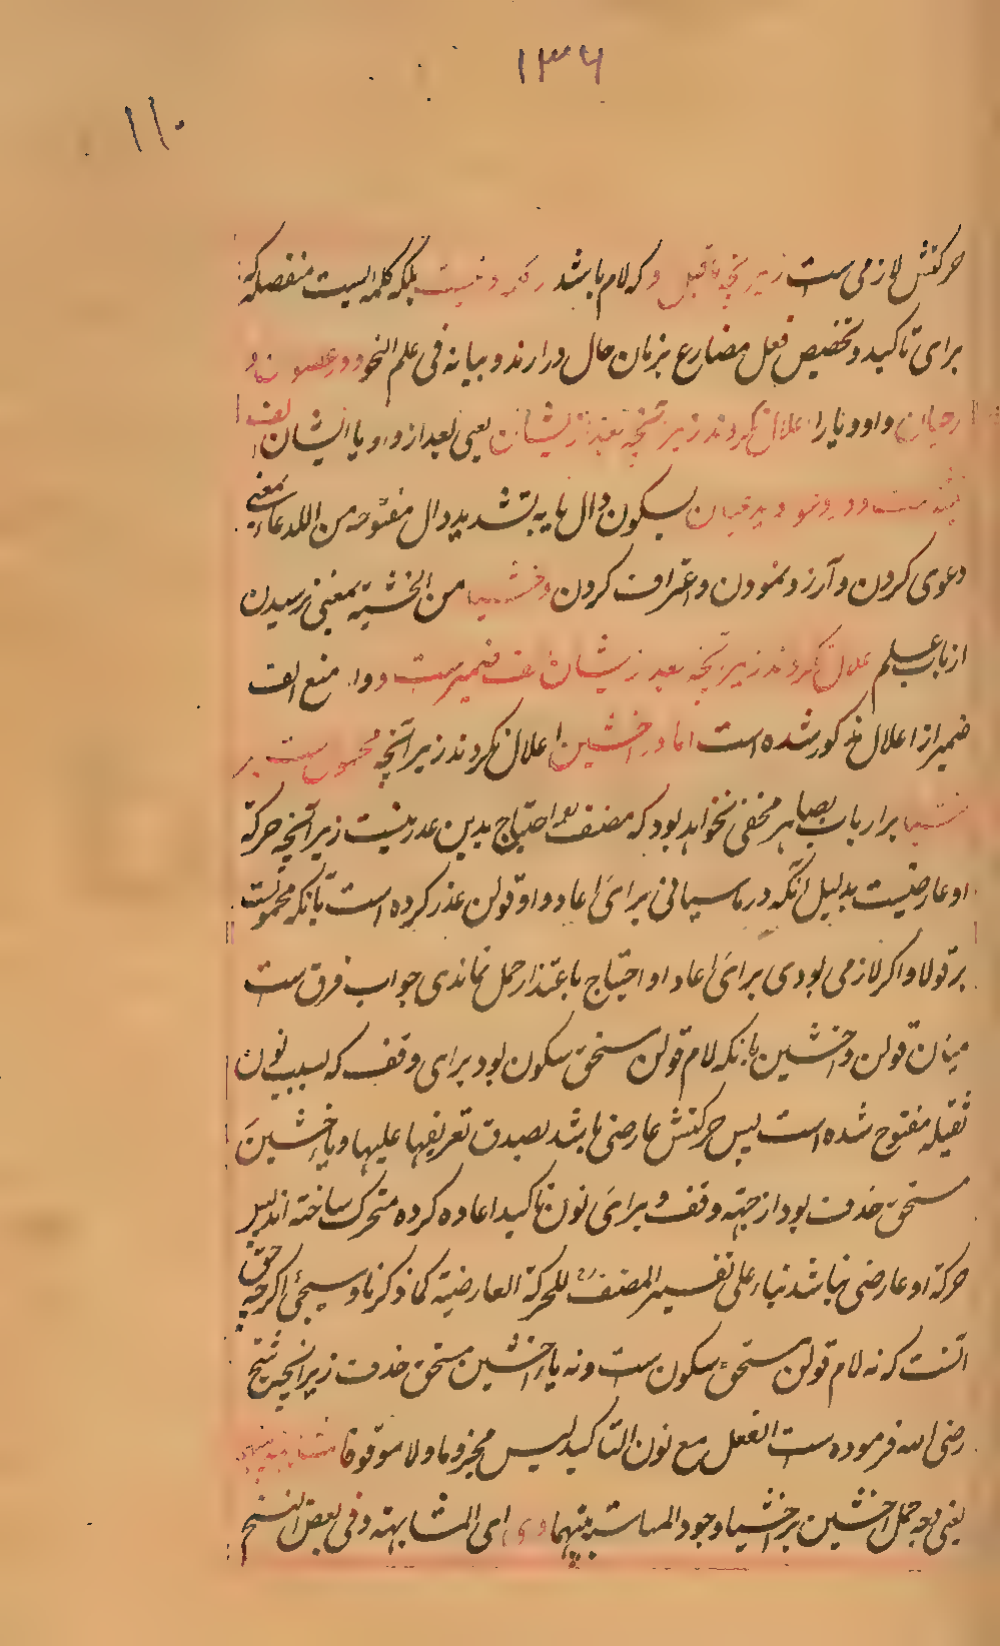 ۱۳۶
۱۱۰
حرکتش لازمی ست زیرآنچه ماقبل و که لام باشد رکله و نیست بلکه کلمه ایست منفصله که
برای تاکید و تخصیص فعل مضارع بزمان حال درارند و بیانه فی علم النحو و در
واو و یا را اعلال نکردند زیرآنچه بعد ازیشان یعنی بعد از واو و یا ایشان الف
بسکون دال نا یه بتشدید دال مفتوحه من اللدعاء بمعنی
دعوی کردن و آرزو نمودن و اعتراف کردن و خشیا من الخشیة بمعنی ترسیدن
از باب علم اعلال نکردند زیرآنچه بعد ازیشان الف ضمیرست و وا منع الف
ضمیر از اعلال مذکور شده است اما در اخشین اعلال نکردند زیرآنچه محمول ست بر
خشیا بر ارباب بصایر مخفی نخواهد بود که مصنف را احتیاج بدین عذر نیست زیرآنچه حرکة
او عارضیست بدلیل آنکه در ماسیاتی برای اعاد واو قولن عذر کرده است بآنکه محمولست
بر قولا و اکر لازمی بودی برای اعاد او احتیاج باعتذار حمل نماندی جواب فرق ست
میان قولن و اخشین بآنکه لام قولن مستحق سکون بود برای وقف که بسبب نون
ثقیله مفتوح شده است پس حرکتش عارضی باشد بصدق تعریفها علیها و یاء اخشین
مستحق حذف بود از جهة وقف و برای نون تاکید اعاده کرده متحرک ساخته اند پس
حرکة او عارضی نباشد بناء علی تفسیر المصنف للحرکة العارضیة کما ذکرنا و سیجئ اکرچه حق
آنست که نه لام قولن مستحق سکون ست و نه یاء اخشین مستحق حذف زیرآنچه شیخ
رضی الله فرموده ست الفعل مع نون التاکید لیس مجزوما ولا موقوفا
یعنی وجه حمل اخشین بر اخشیا وجود المشابهة بینهما وی ای المشابهة و فی بعض النسخ